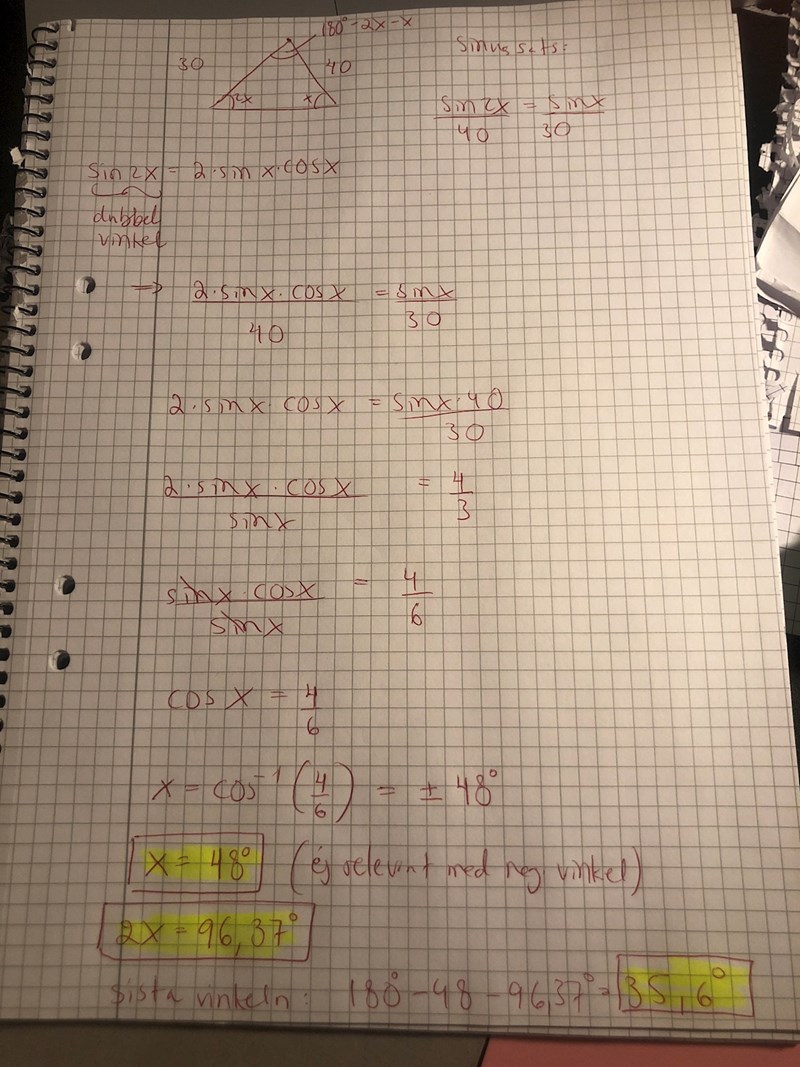 180° - 2x - x
30
40
2x
x
Sinussats:
sin 2x / 40 = sin x / 30
sin 2x = 2 · sin x · cos x
dubbel
vinkel
=> 2 · sin x · cos x / 40 = sin x / 30
2 · sin x · cos x = sin x · 40 / 30
2 · sin x · cos x / sin x = 4 / 3
sin x · cos x / sin x = 4 / 6
cos x = 4 / 6
x = cos⁻¹ (4 / 6) = ± 48°
x = 48° (ej relevant med neg. vinkel)
2x = 96,37°
sista vinkeln: 180° - 48 - 96,37° = 35,6°